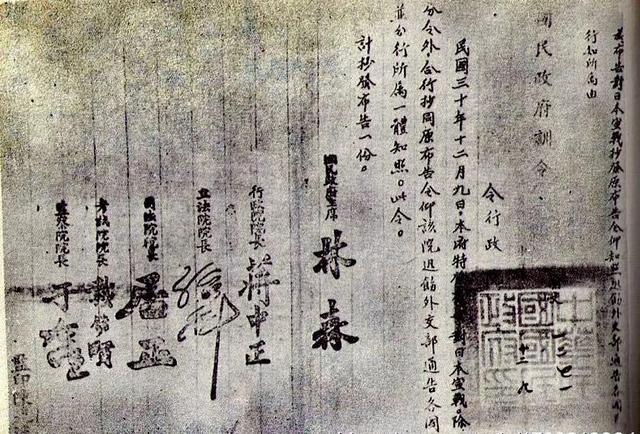 發布告對日本宣戰抄發原布告令仰知照並飭外交部通告各國
行知所屬由
國民政府訓令
令行政
民國三十年十二月九日，本府特 對日本宣戰。除
分令外合行抄同原布告令仰該院迅飭外交部通告各國
並分行所屬一體知照。此令。
計抄發布告一份。
國民政府主席 林森
行政院院長 蔣中正
立法院院長 孫科
司法院院長 居正
考試院院長 戴傳賢
監察院院長 于右任
監印